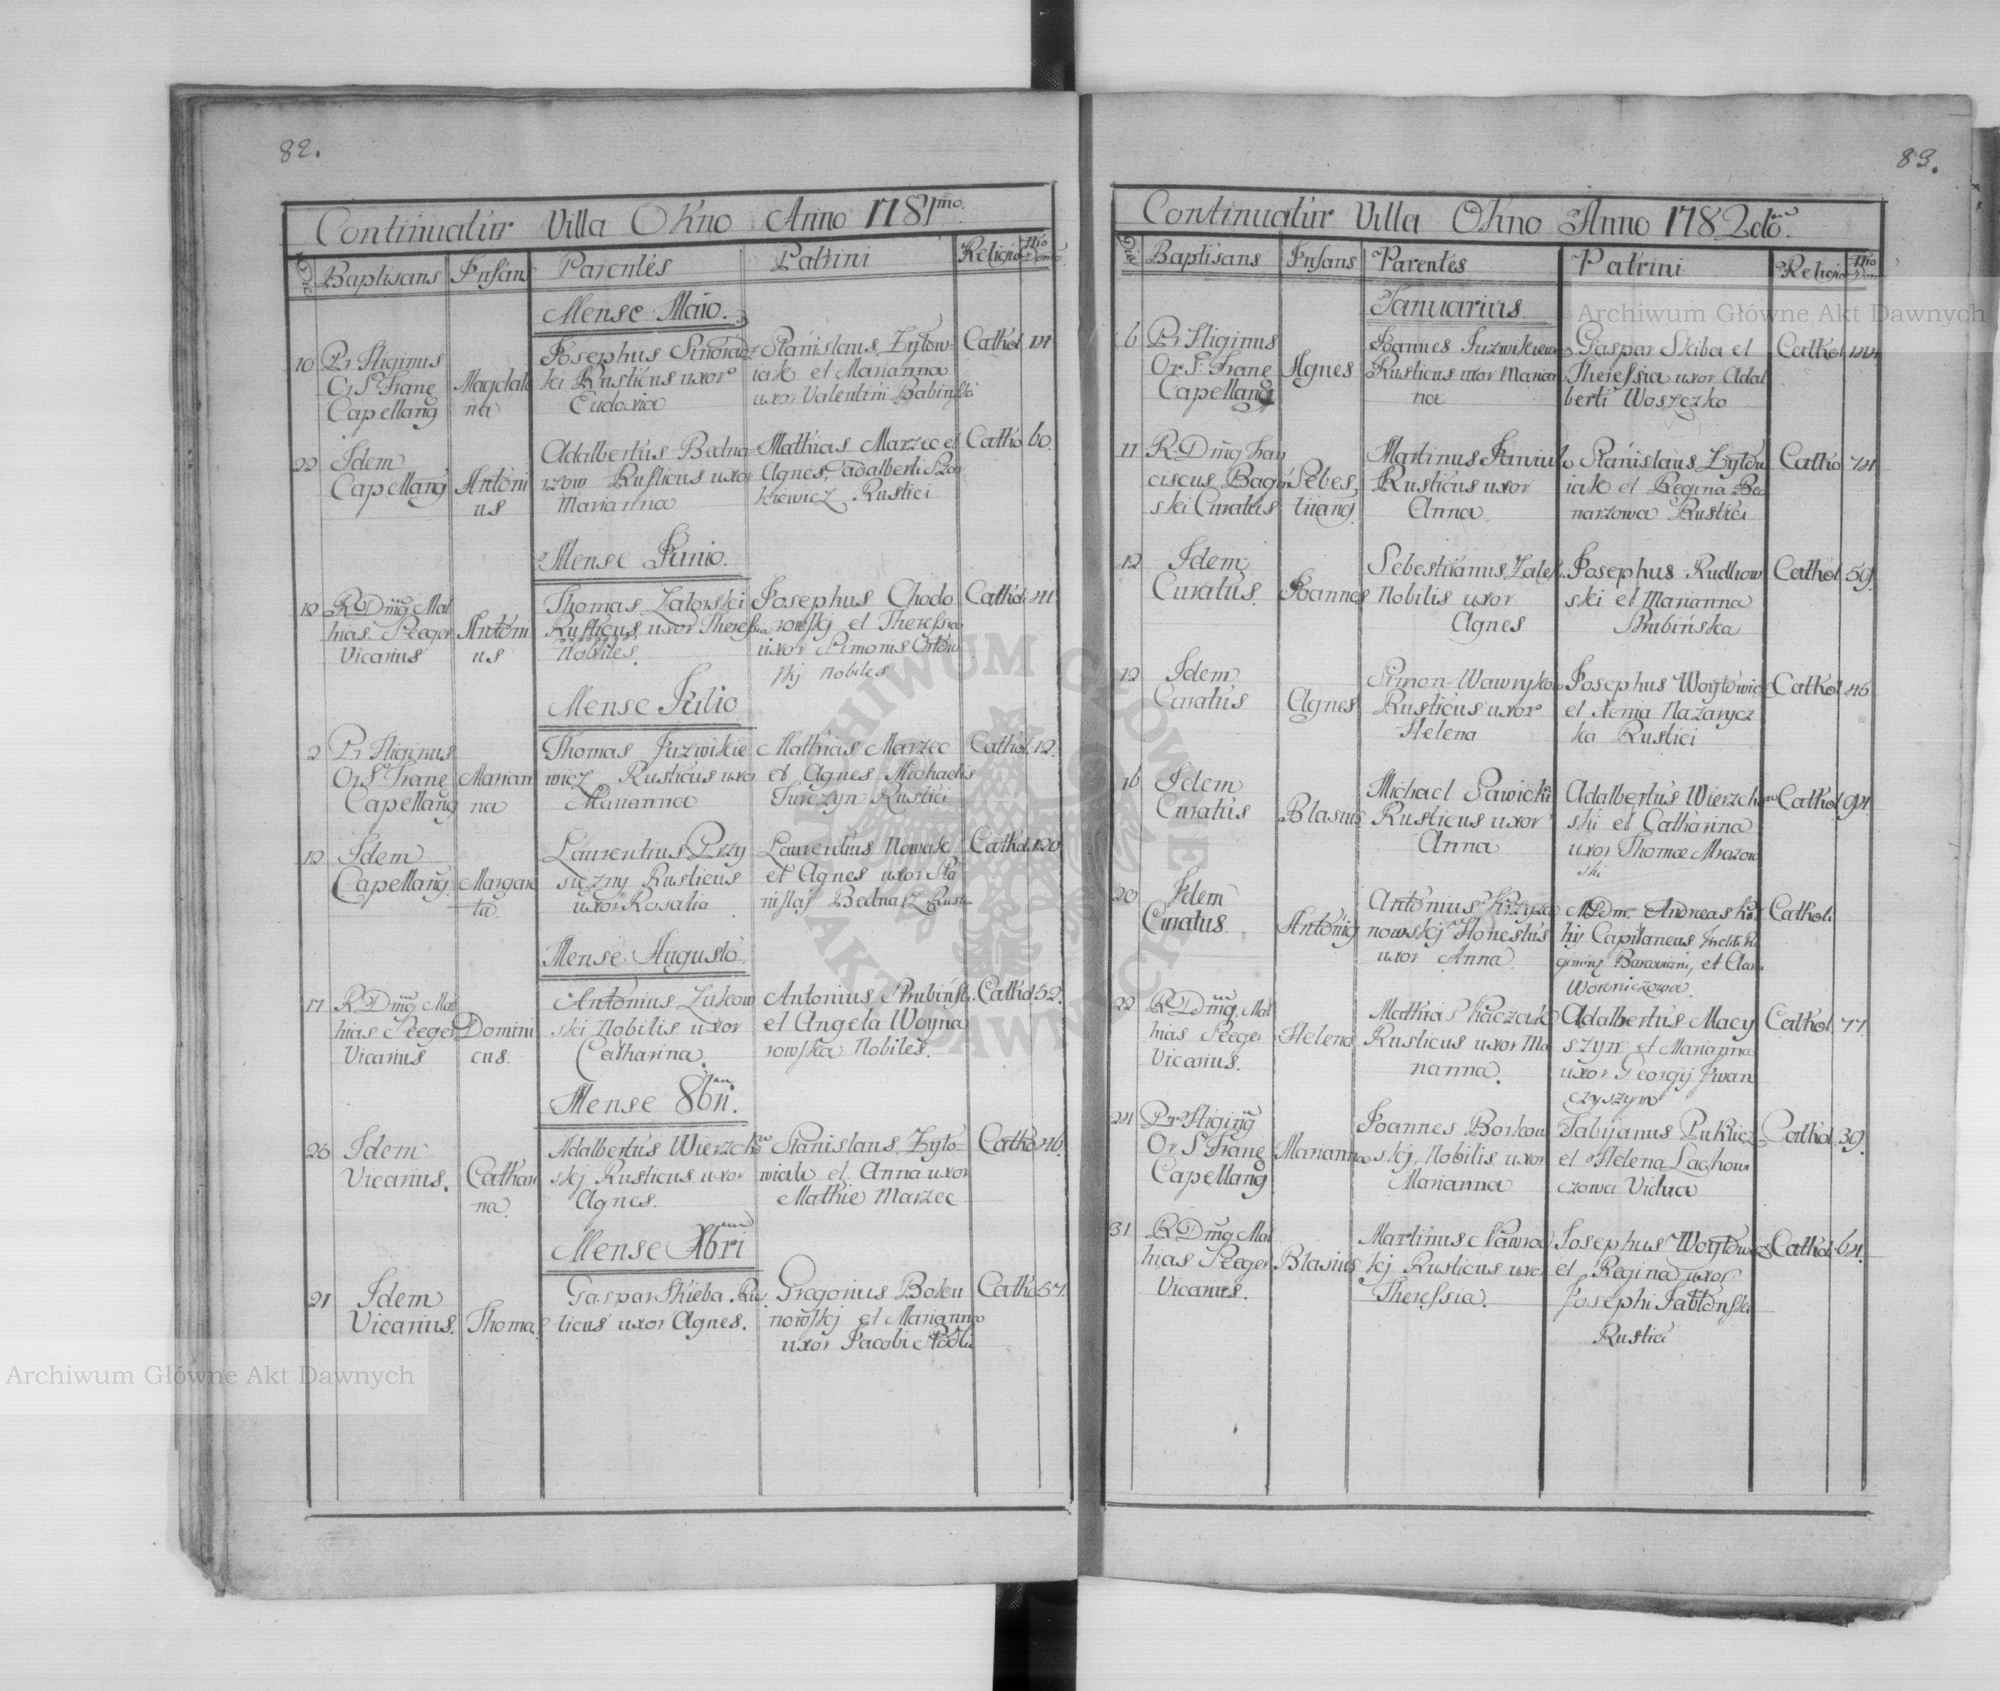 82.
Continuatur Villa Okno Anno 1781mo.
Dies Baptisans Infans Parentes Patrini Religio Nro Dom
Mense Maio.
10 Pr Higinus
Or S. Franc
Capellang
Magdale
na
Josephus
ski Rusticus uxor
Eudoxia
Stanislaus Zytow-
iak et Marianna
uxor Valentini Babinski
Cathol
22 Idem
Capellang
Antoni
us
Adalbertus Bedna
rzow Rusticus uxor
Marianna
Mathias Marzec et
Agnes, Adalberti
kiewicz Rustici
Catho 60.
Mense Junio.
12 R. Dmg Mat
hias Peeger
Vicarius
Antoni
us
Thomas Zatorski
Rusticus uxor Theressia
Nobiles.
Josephus Chodo
rowskj et Theressia
uxor Simonis Ortow
skj Nobiles
Cathol. 41.
Mense Julio
2 Pr Higinus
Or S. Franc
Capellang
Marian
na
Thomas Juzwikie
wicz Rusticus uxor
Marianna
Mathias Marzec
et Agnes Michaelis
Turczyn Rustici
Cathol. 12.
12 Idem
Capellang.
Margare
ta.
Laurentius Przy
siezny Rusticus
uxor Rosalia
Laurentius Nowak
et Agnes uxor Sta
nislaj Bednarz Rust
Cathol. 120
Mense Augusto.
17 R. Dmg Mat
hias Peeger
Vicarius
Domini
cus.
Antonius Zukow
ski Nobilis uxor
Catharina.
Antonius Strubinski.
et Angela Woyna
rowska Nobiles.
Cathol. 52.
Mense 8bri.
26 Idem
Vicarius.
Cathari
na.
Adalbertus Wierzcho
skj Rusticus uxor
Agnes.
Stanislaus Zyto-
wiak et Anna uxor
Mathie Marzec
Catho
Mense Xbri
21 Idem
Vicarius.
Thomas
Gaspar Skieba Rus
ticus uxor Agnes.
Gregorius
nowskj et Marianna
uxor Jacobi
Catho 57.
83.
Continuatur Villa Okno Anno 1782do.
Dies Baptisans Infans Parentes Patrini Religio Nro Dom
Januarius.
6 Pr Higinus
Or S. Franc
Capellang
Agnes
Joannes Juzwikiewicz
Rusticus uxor Marian
na
Gaspar Skiba et
Theressia uxor Adal
berti Woszczko
Cathol
11 R. Dmg Fran
ciscus Bagin
ski Curatus
Sebes,
tiang
Martinus
Rusticus uxor
Anna
Stanislaus Zytow
iak et Regina Bed
narzowa Rustici
Catho 74.
12 Idem
Curatus.
Joannes
Sebestianus Zales.
Nobilis uxor
Agnes
Josephus Rudkow
ski et Marianna
Strubińska
Cathol. 59.
12 Idem
Curatus
Agnes
Simon Wawryko
Rusticus uxor
Helena
Josephus Woytowicz
et Xenia Nazarycz
ka Rustici
Cathol. 46
16 Idem
Curatus
Blasius
Michael Sawicki
Rusticus uxor
Anna
Adalbertus Wierzchow
ski et Catharina
uxor Thomæ Mrozow
ski
Cathol. 94.
20 Idem
Curatus
Antonig
Antonius Krzyza
nowskj Honestus
uxor Anna.
Andreas
Capitaneus
et
Cathol.
22 R. Dmg. Mat
hias Peeger
Vicarius.
Helena
Mathias Kaczak
Rusticus uxor Ma
rianna.
Adalbertus Macy
szyn et Marianna
uxor Georgij Iwan
czyszyn
Cathol. 77.
24 Pr Higing
Or S. Franc
Capellang
Marianna
Joannes Borkow
skj Nobilis uxor
Marianna
Fabijanus Puklicz
et Helena Lachow
czowa Vidua
Cathol. 39.
31 R. Dmg Mat
hias Peeger
Vicarius.
Blasius
Martinus Nawroc
kj Rusticus uxor
Theressia.
Josephus Woytowicz
et Regina uxor
Josephi Jablonski
Rustici
Cathol. 64.
Archiwum Główne Akt Dawnych
Archiwum Główne Akt Dawnych
ARCHIWUM GŁÓWNE AKT DAWNYCH